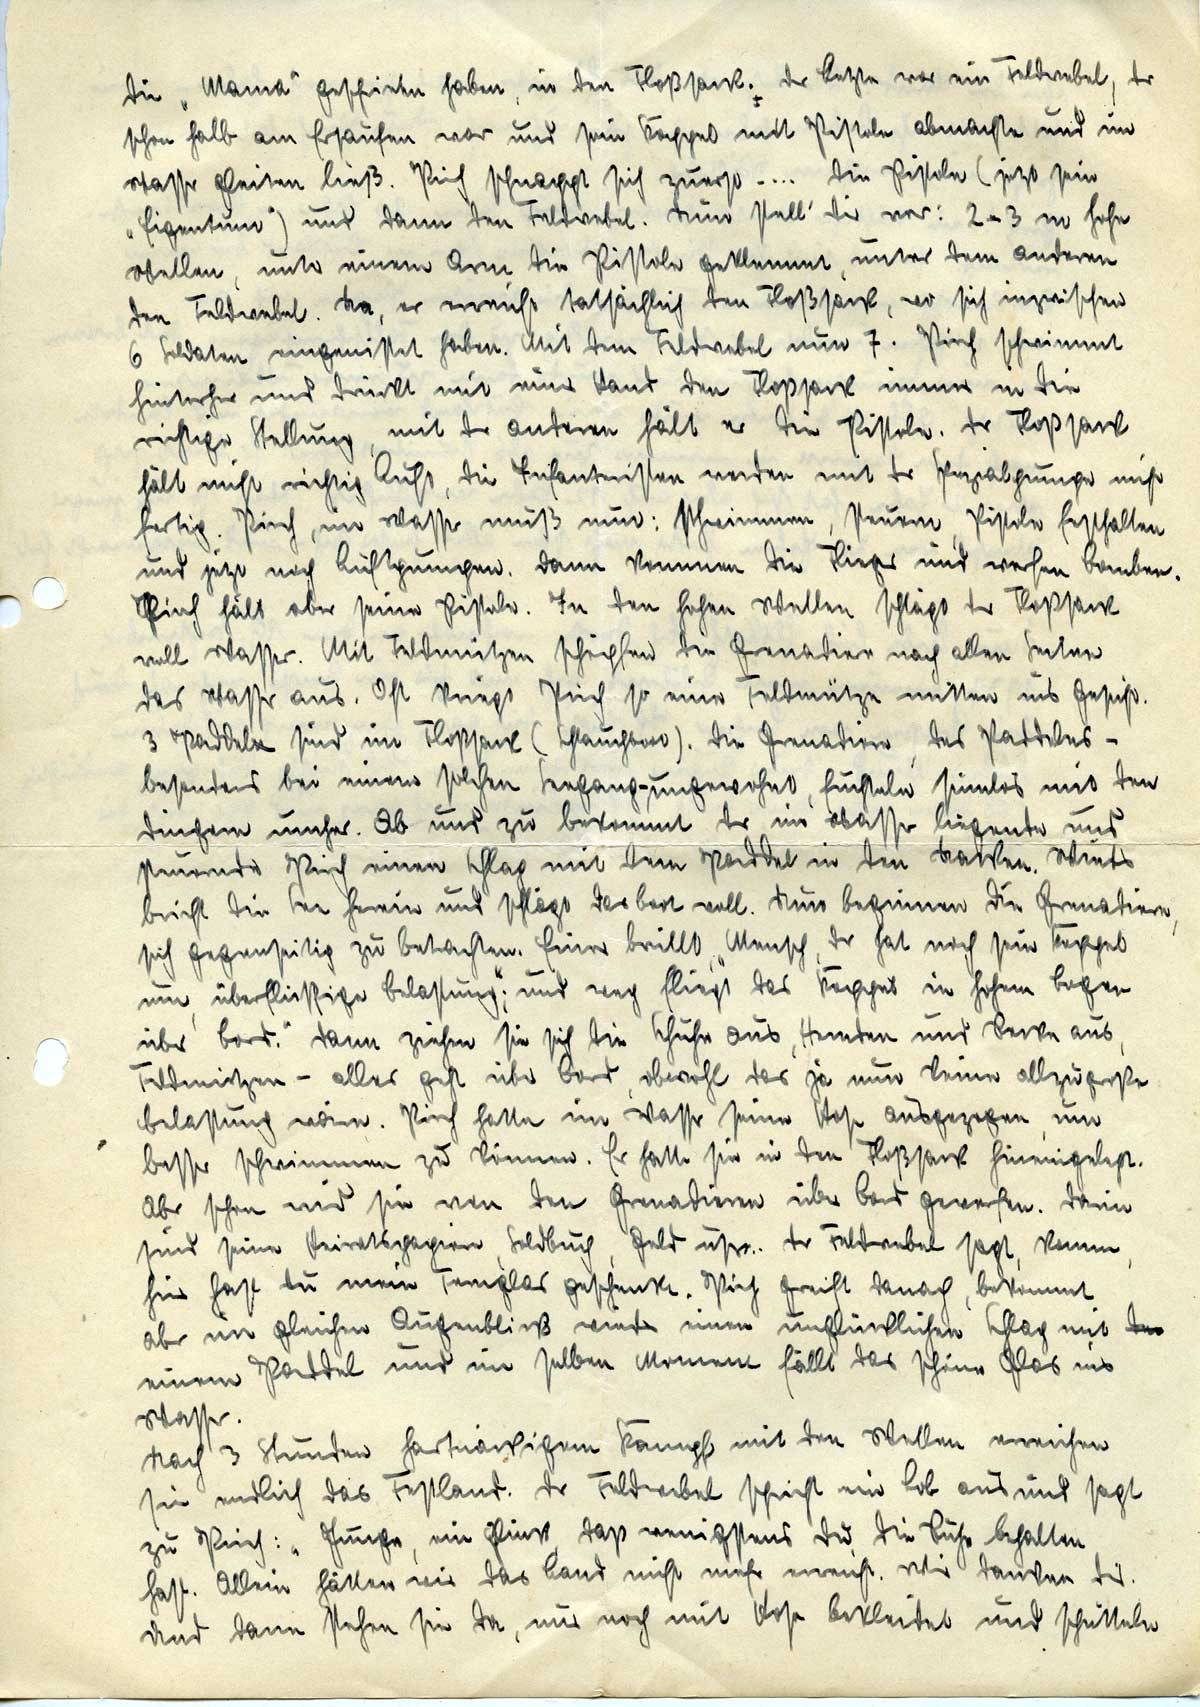 die „Mama“ geschrieen haben, in den Floßsack. Der Letzte war ein Feldwebel, der
schon halb am Ersaufen war und sein Koppel mit Pistole abmachte und im
Wasser gleiten ließ. Pirch schnappt sich zuerst .... die Pistole (jetzt sein
„Eigentum“) und dann den Feldwebel. Nun stell' dir vor: 2-3 m hohe
Wellen, unter einem Arm die Pistole geklemmt, unter dem anderen
den Feldwebel. Na, er erreicht tatsächlich den Floßsack, wo sich inzwischen
6 Soldaten eingenistet haben. Mit dem Feldwebel nun 7. Pirch schwimmt
hinterher und drückt mit einer Hand den Floßsack immer in die
richtige Stellung, mit der anderen hält er die Pistole. Der Floßsack
hält nicht richtig Luft, die Infanteristen werden mit der Spezialpumpe nicht
fertig. Pirch, im Wasser muß nun: schwimmen, steuern, Pistole festhalten
und jetzt noch Luftpumpen. Dann kommen die Flieger und werfen Bomben.
Pirch hält aber seine Pistole. In den hohen Wellen schlägt der Floßsack
voll Wasser. Mit Feldmützen schöpfen die Grenadiere nach allen Seiten
das Wasser aus. Oft kriegt Pirch so eine Feldmütze mitten ins Gesicht.
3 Paddeln sind im Floßsack (Schlauchboot). Die Grenadiere, des Paddelns -
besonders bei einem solchen Seegang - ungewohnt, fuchteln sinnlos mit den
Dingern umher. Ab und zu bekommt der im Wasser liegende und
steuernde Pirch einen Schlag mit dem Paddel in den Nacken. Wieder
bricht die See herein und schlägt das Boot voll. Nun beginnen die Grenadiere,
sich gegenseitig zu betrachten. Einer brüllt „Mensch, der hat noch sein Koppel
um, überflüssige Belastung“; und weg fliegt das Koppel in hohem Bogen
über Bord.“ Dann ziehen sie sich die Schuhe aus, Hemden und Röcke aus,
Feldmützen - alles geht über Bord, obwohl das ja nun keine allzugroße
Belastung wäre. Pirch hatte im Wasser seine Hose ausgezogen, um
besser schwimmen zu können. Er hatte sie in den Floßsack hineingelegt.
Aber schon wird sie von den Grenadieren über Bord geworfen. Darin
sind seine Heiratspapiere, Soldbuch, Geld usw.. Der Feldwebel sagt, komm,
hier hast du mein Fernglas geschenkt. Pirch greift danach, bekommt
aber im gleichen Augenblick wieder einen unglücklichen Schlag mit
einem Paddel und im selben Moment fällt das schöne Glas ins
Wasser.
Nach 3 Stunden hartnäckigem Kampf mit den Wellen erreichen
sie endlich das Festland. Der Feldwebel spricht ein Lob aus und sagt
zu Pirch: „Junge, ein Glück, daß wenigstens Du die Ruhe behalten
hast. Allein hätten wir das Land nicht mehr erreicht. Wir danken dir.
Und dann stehen sie da, nur noch mit Hose bekleidet und schütteln